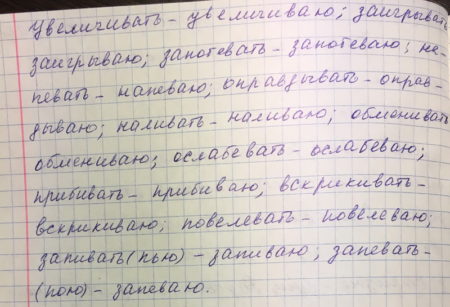 Увеличивать - увеличиваю; заигрывать
заигрываю; запотевать - запотеваю; на-
певать - напеваю; оправдывать - оправ-
дываю; наливать - наливаю; обменивать
обмениваю; ослабевать - ослабеваю;
прибивать - прибиваю; вскрикивать -
вскрикиваю; повелевать - повелеваю;
запивать (пью) - запиваю; запевать -
(пою) - запеваю.